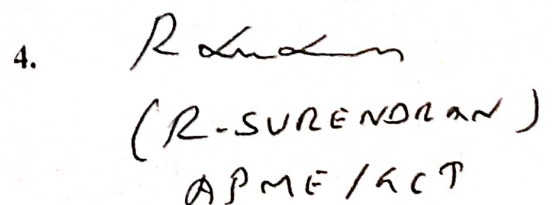 4. R
(R-SURENDRAN)
APME/KCT